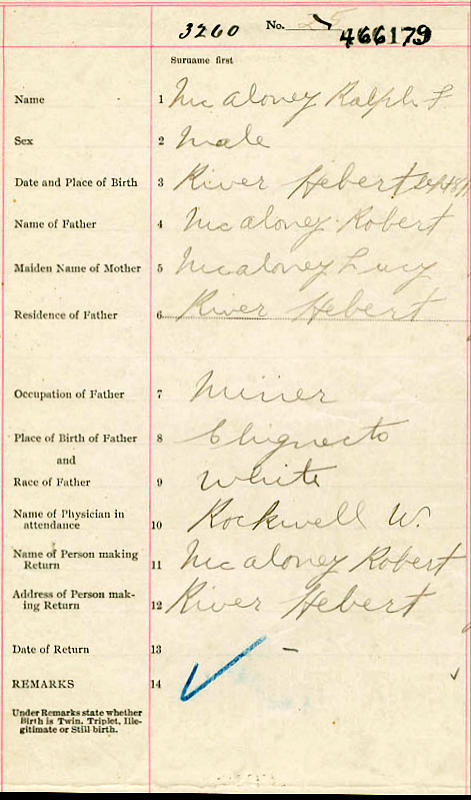 3260 No. 25 466179
Surname first
Name 1 McAloney Ralph F.
Sex 2 Male
Date and Place of Birth 3 River Hebert Sept 8
Name of Father 4 McAloney Robert
Maiden Name of Mother 5 McAloney Lucy
Residence of Father 6 River Hebert
Occupation of Father 7 Miner
Place of Birth of Father 8 Chignecto
and
Race of Father 9 White
Name of Physician in
attendance 10 Rockwell W.
Name of Person making
Return 11 McAloney Robert
Address of Person mak-
ing Return 12 River Hebert
Date of Return 13 –
REMARKS 14
Under Remarks state whether
Birth is Twin, Triplet, Ille-
gitimate or Still birth.